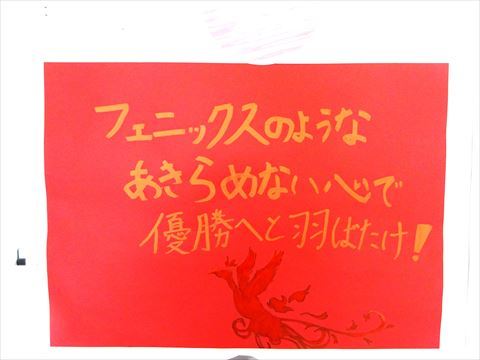 フェニックスのような
あきらめない心で
優勝へと羽ばたけ!